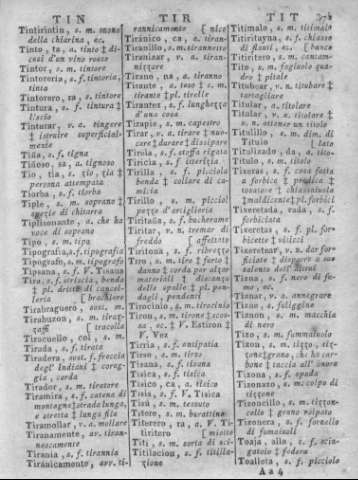 TIN
TIR
TIT
Tintirintin, s. m. suono
della chiarina, ec.
Tinto, ta, a. tinto ‡ di-
cesi d'un vino rosso
Tintor, s. m. tintore
Tintoreria, s. f. tintoria,
tinta
Tintorero, ra, s. tintore
Tintura, s. f. tintura ‡
Tinturar, v. a. tingere
‡ istruire superficial-
mente
Tiña, s. f. tigna
Tiñoso, sa, a. tignoso
Tio, tia, s. zio, zia ‡
persona attempata
Tiorba, s. f. tiorba
Tiple, s. m. soprano ‡
specie di chitarra
Tiplisonante, a. che ha
voce di soprano
Tipo, s. m. tipo
Tipografia, s. f. tipografia
Tipografo, s. m. tipografo
Tipsana, s. f. V. Tisana
Tira, s. f. striscia, benda
‡ pl. diritti di cancel-
leria [ brachiere
Tirabraguero, s. m.
Tirabuzon, s. m. tiraz-
zaff [ tracolla
Tiracuello, col, s. m.
Tirada, s. f. tirata
Tiradera, sust. f. freccia
degl' Indiani ‡ coreg-
gia, corda
Tirador, s. m. tiratore
Tiramira, s. f. catena di
montagne ‡ strada lunga,
e stretta ‡ lunga fila
Tiramollar, v. a. mollare
Tiranamente, av. tiran-
nescamente
Tirania, s. f. tirannia
Tiránicamento, av. ti-
rannicamente [ nico
Tiránico, ca, a. tiran-
Tiranillo, s. m. tirannetto
Tiranizar, v. a. tiran-
nizzare
Tirano, na, a. tiranno
Tirante, a. teso ‡ s. m.
tirante ‡ pl. tirelle
Tirantez, s. f. lunghezza
d'una cosa
Tirapie, s. m. capestro
Tirar, v. a. tirare ‡ nuo-
cere ‡ durare ‡ dissipare
Tirela, s. f. stoffa rigata
Tiricia, s. f. itterizia
Tirilla, s. f. picciola
benda ‡ collare di ca-
micia
Tirillo, s. m. picciol
pezzo d'artiglieria
Tiritaña, s. f. bucherame
Tiritar, v. n. tremar di
freddo [ affettato
Tiritona, s. f. ribrezzo
Tiro, s. m. tiro ‡ furto ‡
danno ‡ corda per alzar
materiali ‡ distanza
dello spalle ‡ pl. pen-
dagli, pendenti
Tirocinio, s. m. tirocinio
Tiron, s. m. tirone ‡ scos-
sa, ec. ‡ V. Estiron ‡
V. Vez
Tirria, s. f. antipatia
Tirso, s. m. tirso
Tisana, s. f. tisana
Tisica, s. f. tisica
Tísico, ca, a. tisico
Tisis, s. f. V. Tisica
Tisú, s. m. tessuto
Titere, s. m. burattino
Titerero, ra, s. V. Ti-
tiritero [ micote
Titi, s. m. sorta di sci-
Titilacion, s. f. titilla-
zione
Titimalo, s. m. titimalo
Titiritayna, s. f. chiasso
di flauti, ec. [ banco
Titiritero, s. m. cantim-
Tito, s. m. fagiuolo qua-
dro ‡ pitale
Titubear, v. n. titubare ‡
tartagliare
Titular, a. titolare
Titular, v. a. titolare ‡
v. n. ottener un titolo
Titulillo, s. m. dim. di
Titulo [ lato
Titulizado, da, a. tito-
Título, s. m. titolo
Tixeras, s. f. cosa fatta
a forbice ‡ predica ‡
tosatore ‡
‡ maldicente ‡ pl. forbici
Tixeretada, vada, s. f.
forbiciata
Tixeretas, s. f. pl. for-
bicette ‡ viticci
Tixeretear, v. a. dar for-
ficiate ‡ disporr a suo
talento dell'altrui
Tizna, s. f. nero di fu-
mo, ec.
Tiznar, v. a. annegrare
Tizne, s. f. fuliggine
Tiznon, s. m. macchia
di nero
Tizo, s. m. fummaiuolo
Tizon, s. m. tizzo, tiz-
zone ‡ grana, che ha car-
bone ‡ taccia all' onore
Tizona, s. f. spada
Tizonazo, s. m. colpo di
tizzone
Tizoncillo, s. m. tizzon-
cello ‡ grano volpato
Tizonera, s. f. fornello
di fumaiuoli
Toaja, alla, s. f. sciu-
gatoio ‡ fodera
Toalleta, s. f. picciola
A a 4